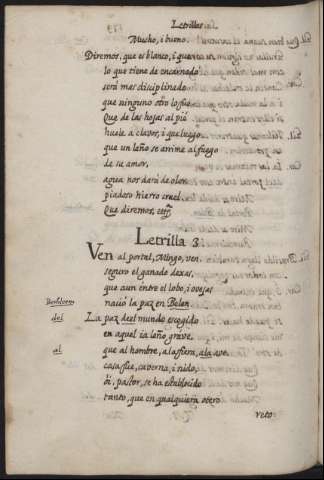 Letrillas
Mucho, i bueno.
Diremos, que es blanco, i que
lo que tiene de encarnado
será mas disciplinado
que ninguno otro lo fue
Que de las hojas al pié
huele a clavos, i que luego
que un leño se arrime al fuego
de su amor,
agua nos dará de olor
piadoso hierro cruel.
Que diremos,
Letrilla 3
Ven al portal, Mingo, ven
seguro el ganado dexas,
que aun entre el lobo, i ovejas
nacio la paz en Belen
del La paz del mundo escogido
en aquel ia leño grave.
al que al hombre, a la fiera, a la ave
casa fue, caverna, i nido,
oi, pastor, se ha establecido
tanto, que en qualquiera otero
reto-